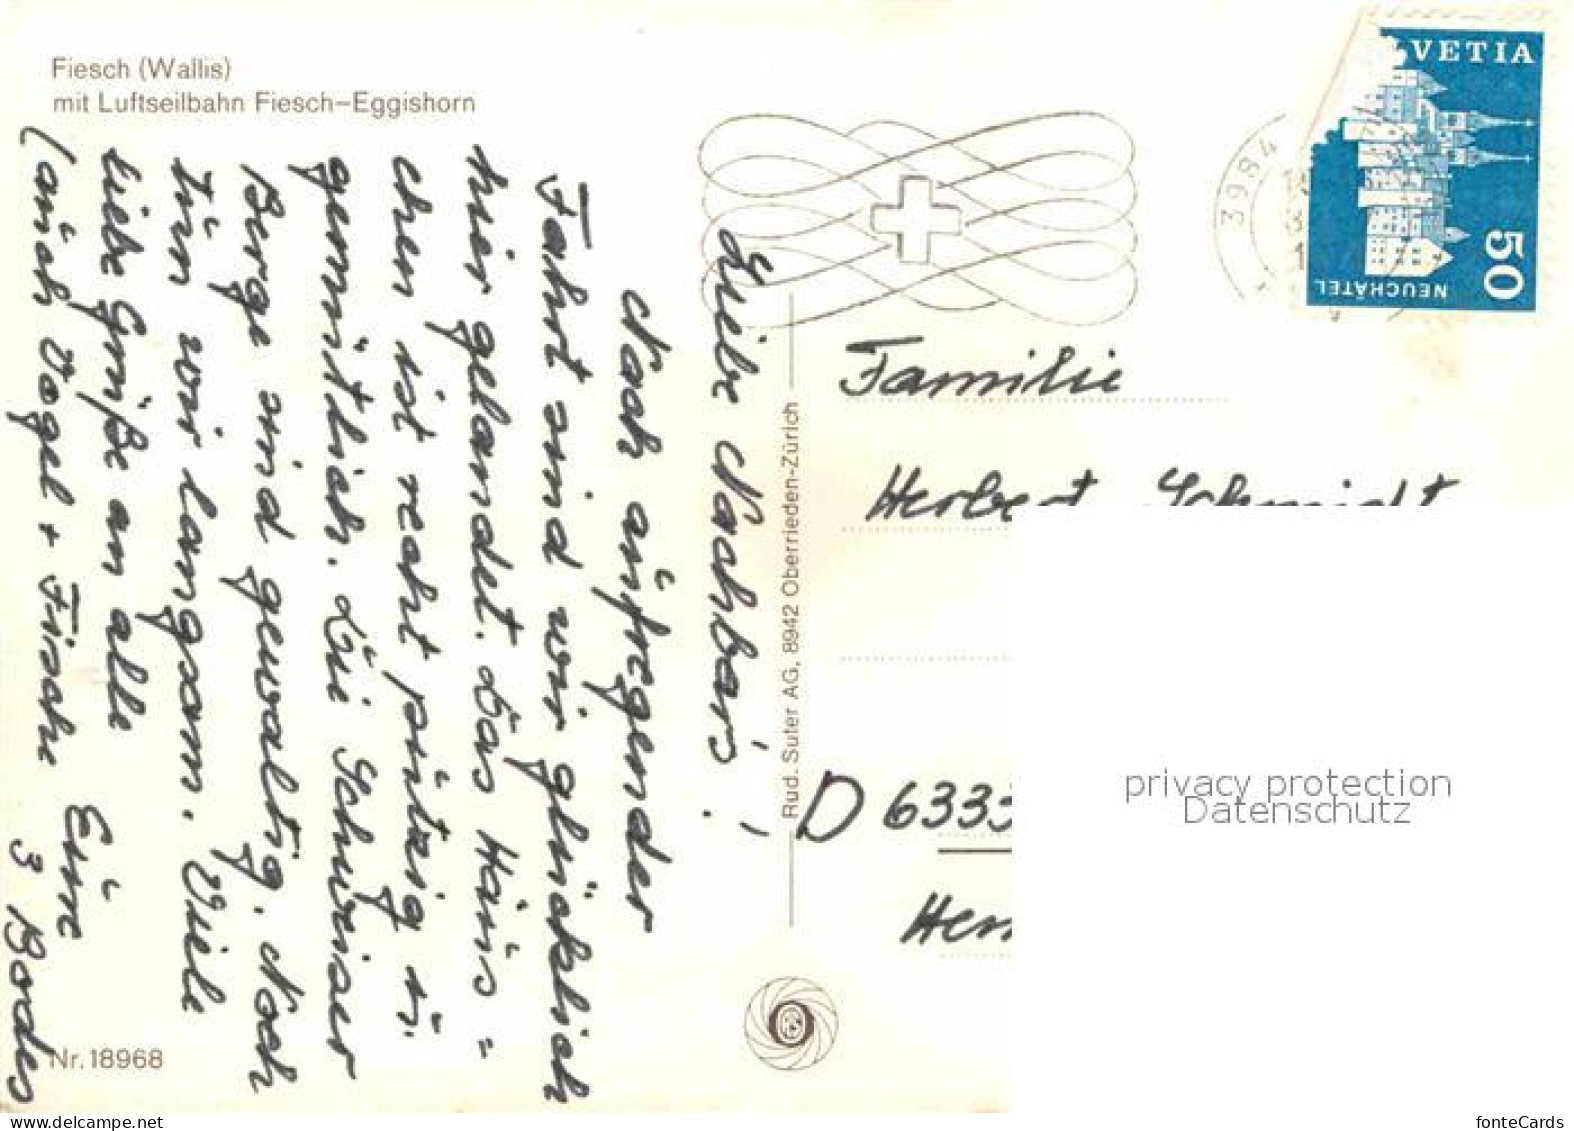 Fiesch (Wallis)
mit Luftseilbahn Fiesch-Eggishorn
Liebe Nachbars!
Nach aufregender
Fahrt sind wir glücklich
hier gelandet. Das Häus=
chen ist recht putzig u.
gemütlich. Die Schweizer
Berge sind gewaltig. Noch
tun wir langsam. Viele
liebe Grüße an alle
(auch Vogel + Fische Eure
3 Bodes
Nr. 18968
Rud. Suter AG, 8942 Oberrieden-Zürich
3984
HELVETIA
50
NEUCHÂTEL
Familie
Herbert Schmidt
D 6333
privacy protection
Datenschutz
www.delcampe.net
fonteCards